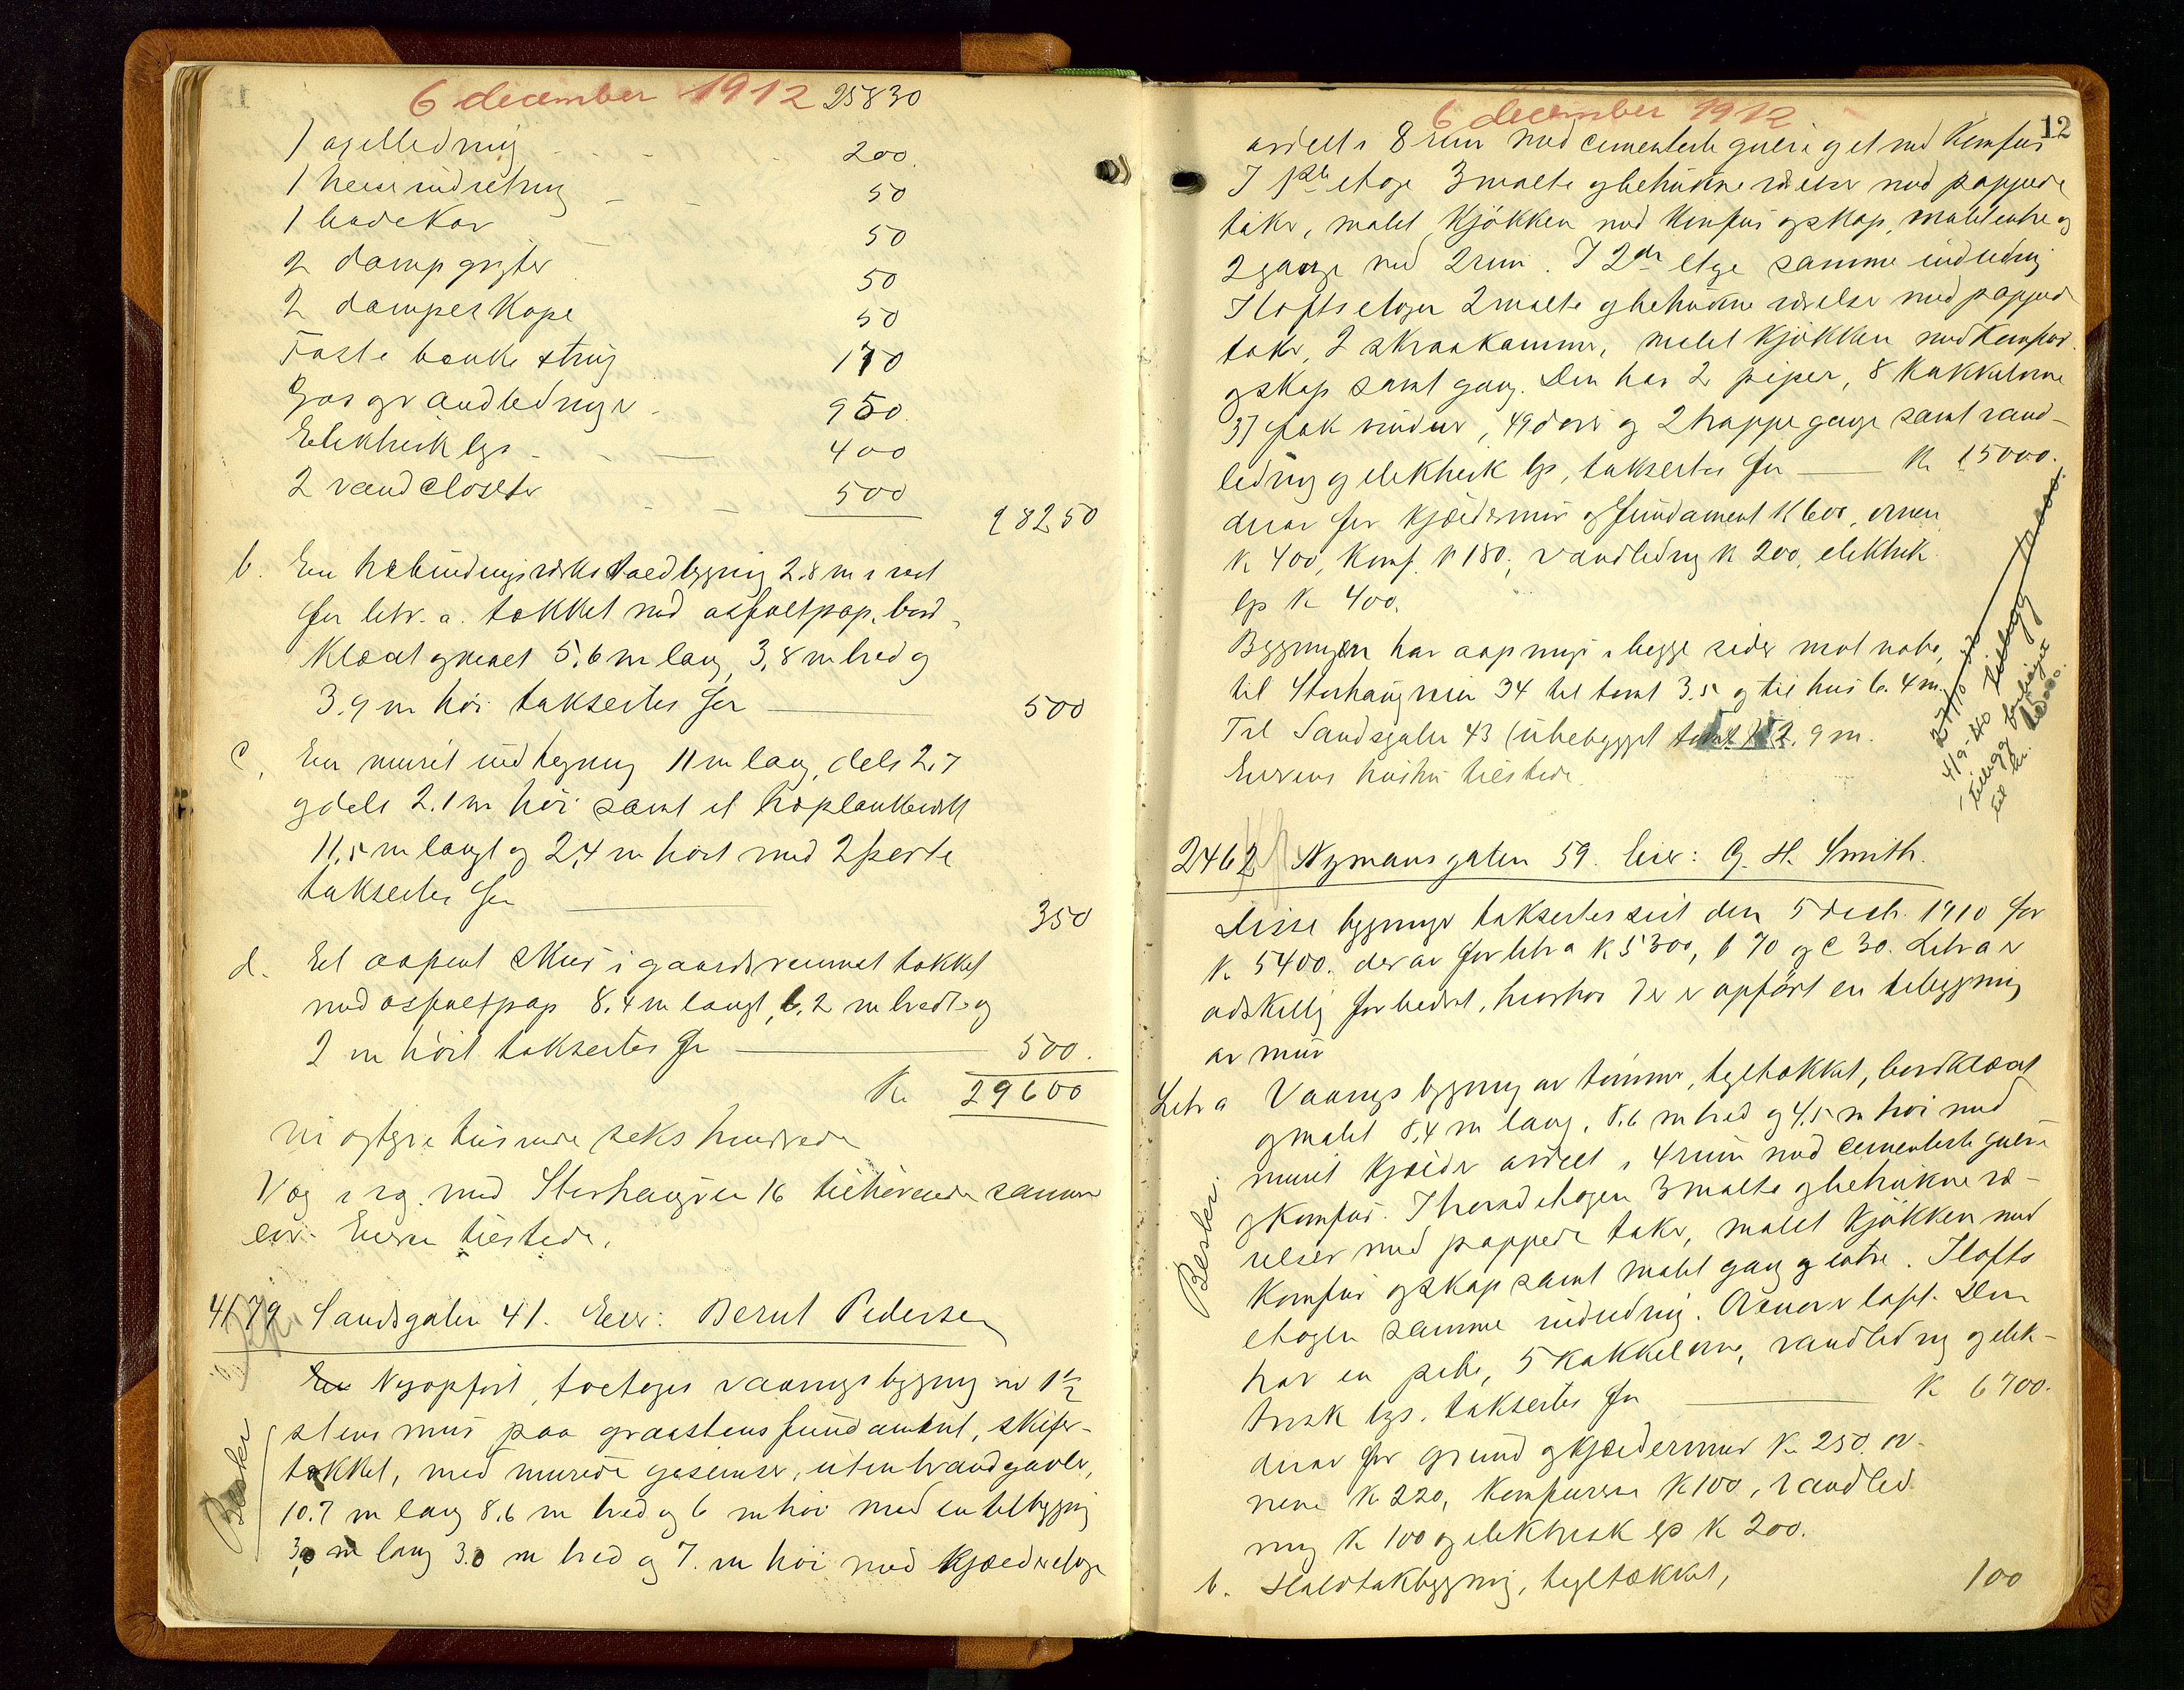 6 december 1912 25830
1 axelledning 200.
1 heiseindretning 50
1 badekar 50
2 dampgryter 50
2 dampeskape 50
Faste bænke 170
Gas og vandledninger 950.
Elektrisk lys 400
2 vandclosetter 500
28250
b. En bindingsverks bygning 2.8 m i vest
for litr. a. tækket med asfaltpap, bord-
klædt og malet 5.6 m lang, 3,8 m bred og
3.9 m høi takseres for 500
c. En muret indhegning 11 m lang, dels 2.7
og dels 2.1 m høi samt et
11,5 m langt og 2,4 m høit med 2 porte
takseres for 350
d. Et aapent skur i gaardsrummet tækket
med asfaltpap 8.4 m langt, 6.2 m bredt og
2 m høit takseres for 500.
Kr 29600
ni og tyve tusinde seks hundrede
Væg i væg med Storhaugveien 16 tilhørende samme
eier. Eieren tilstede.
4179 Sandsgaten 41. Eier: Bernt Pedersen
En Nyopført, toetages vaaningsbygning av 1½
stens mur paa graastensfundament, skifer-
tækket, med murede gesimser, uten brandgavler,
10.7 m lang 8.6 m bred og 6 m høi med en tilbygning
3,0 m lang 3.0 m bred og 7. m høi med kjælderetage
Beskr.
6 december 1912
12
avdelt i 8 rum med cementerte gulve og et med komfur
I 1ste etage 3 malte og betrukne værelser med pappede
taker, malet kjøkken med komfur og skap, malet entre og
2 gange med 2 rum. I 2den etage samme indredning
I loftsetagen 2 malte og betrukne værelser med pappede
taker, 2 skraakammer, malet kjøkken med komfur
og skap samt gang. Den har 2 piper, 8 kakkelovne
37 fak vinduer, 49 dører og 2 trappegange samt vand-
ledning og elektrisk lys, takseres for Kr 15000.
derav for kjældermur og fundament K 600, ovnene
K 400, Komf. K 180, vandledning K 200, elektrisk
lys K 400.
Bygningen har aapninger i begge sider mot nabo,
til Storhaugveien 34 til tomt 3.5 og til hus b. 4 m.
Til Sandsgaten 43 (ubebygget tomt) 2.9 m.
Eierens hustru tilstede.
4/9-40
Tillegg bevilget
til kr.
2462 Nymansgaten 59. Eier: G. H. Smith.
Disse bygninger takseres sist den 5 decb. 1910 for
K. 5400. derav for litr a K 5300, b 70 og c 30. Litr a er
adskillig forbedret, hvorhos der er opført en tilbygning
av mur
Litr a Vaaningsbygning av tømmer, tegltækket, bordklædt
og malet 8,4 m lang, 8.6 m bred og 4,5 m høi med
muret kjælder avdelt i 4 rum med cementerte gulve
og komfur. I hovedetagen 3 malte og betrukne væ-
relser med pappede taker, malet kjøkken med
komfur og skap samt malet gang og entre. I lofts
etagen samme indredning. Ovenover loft. Den
har en pibe, 5 kakkelovne, vandledning og elek-
trisk lys. takseres for K 6700.
derav for grund og kjældermur K. 250. ov-
nene K 220, komfurene K 100, vandled
ning K 100 og elektrisk lys K 200.
Beskr.
b. Halvtakbygning, tegltækket, 100